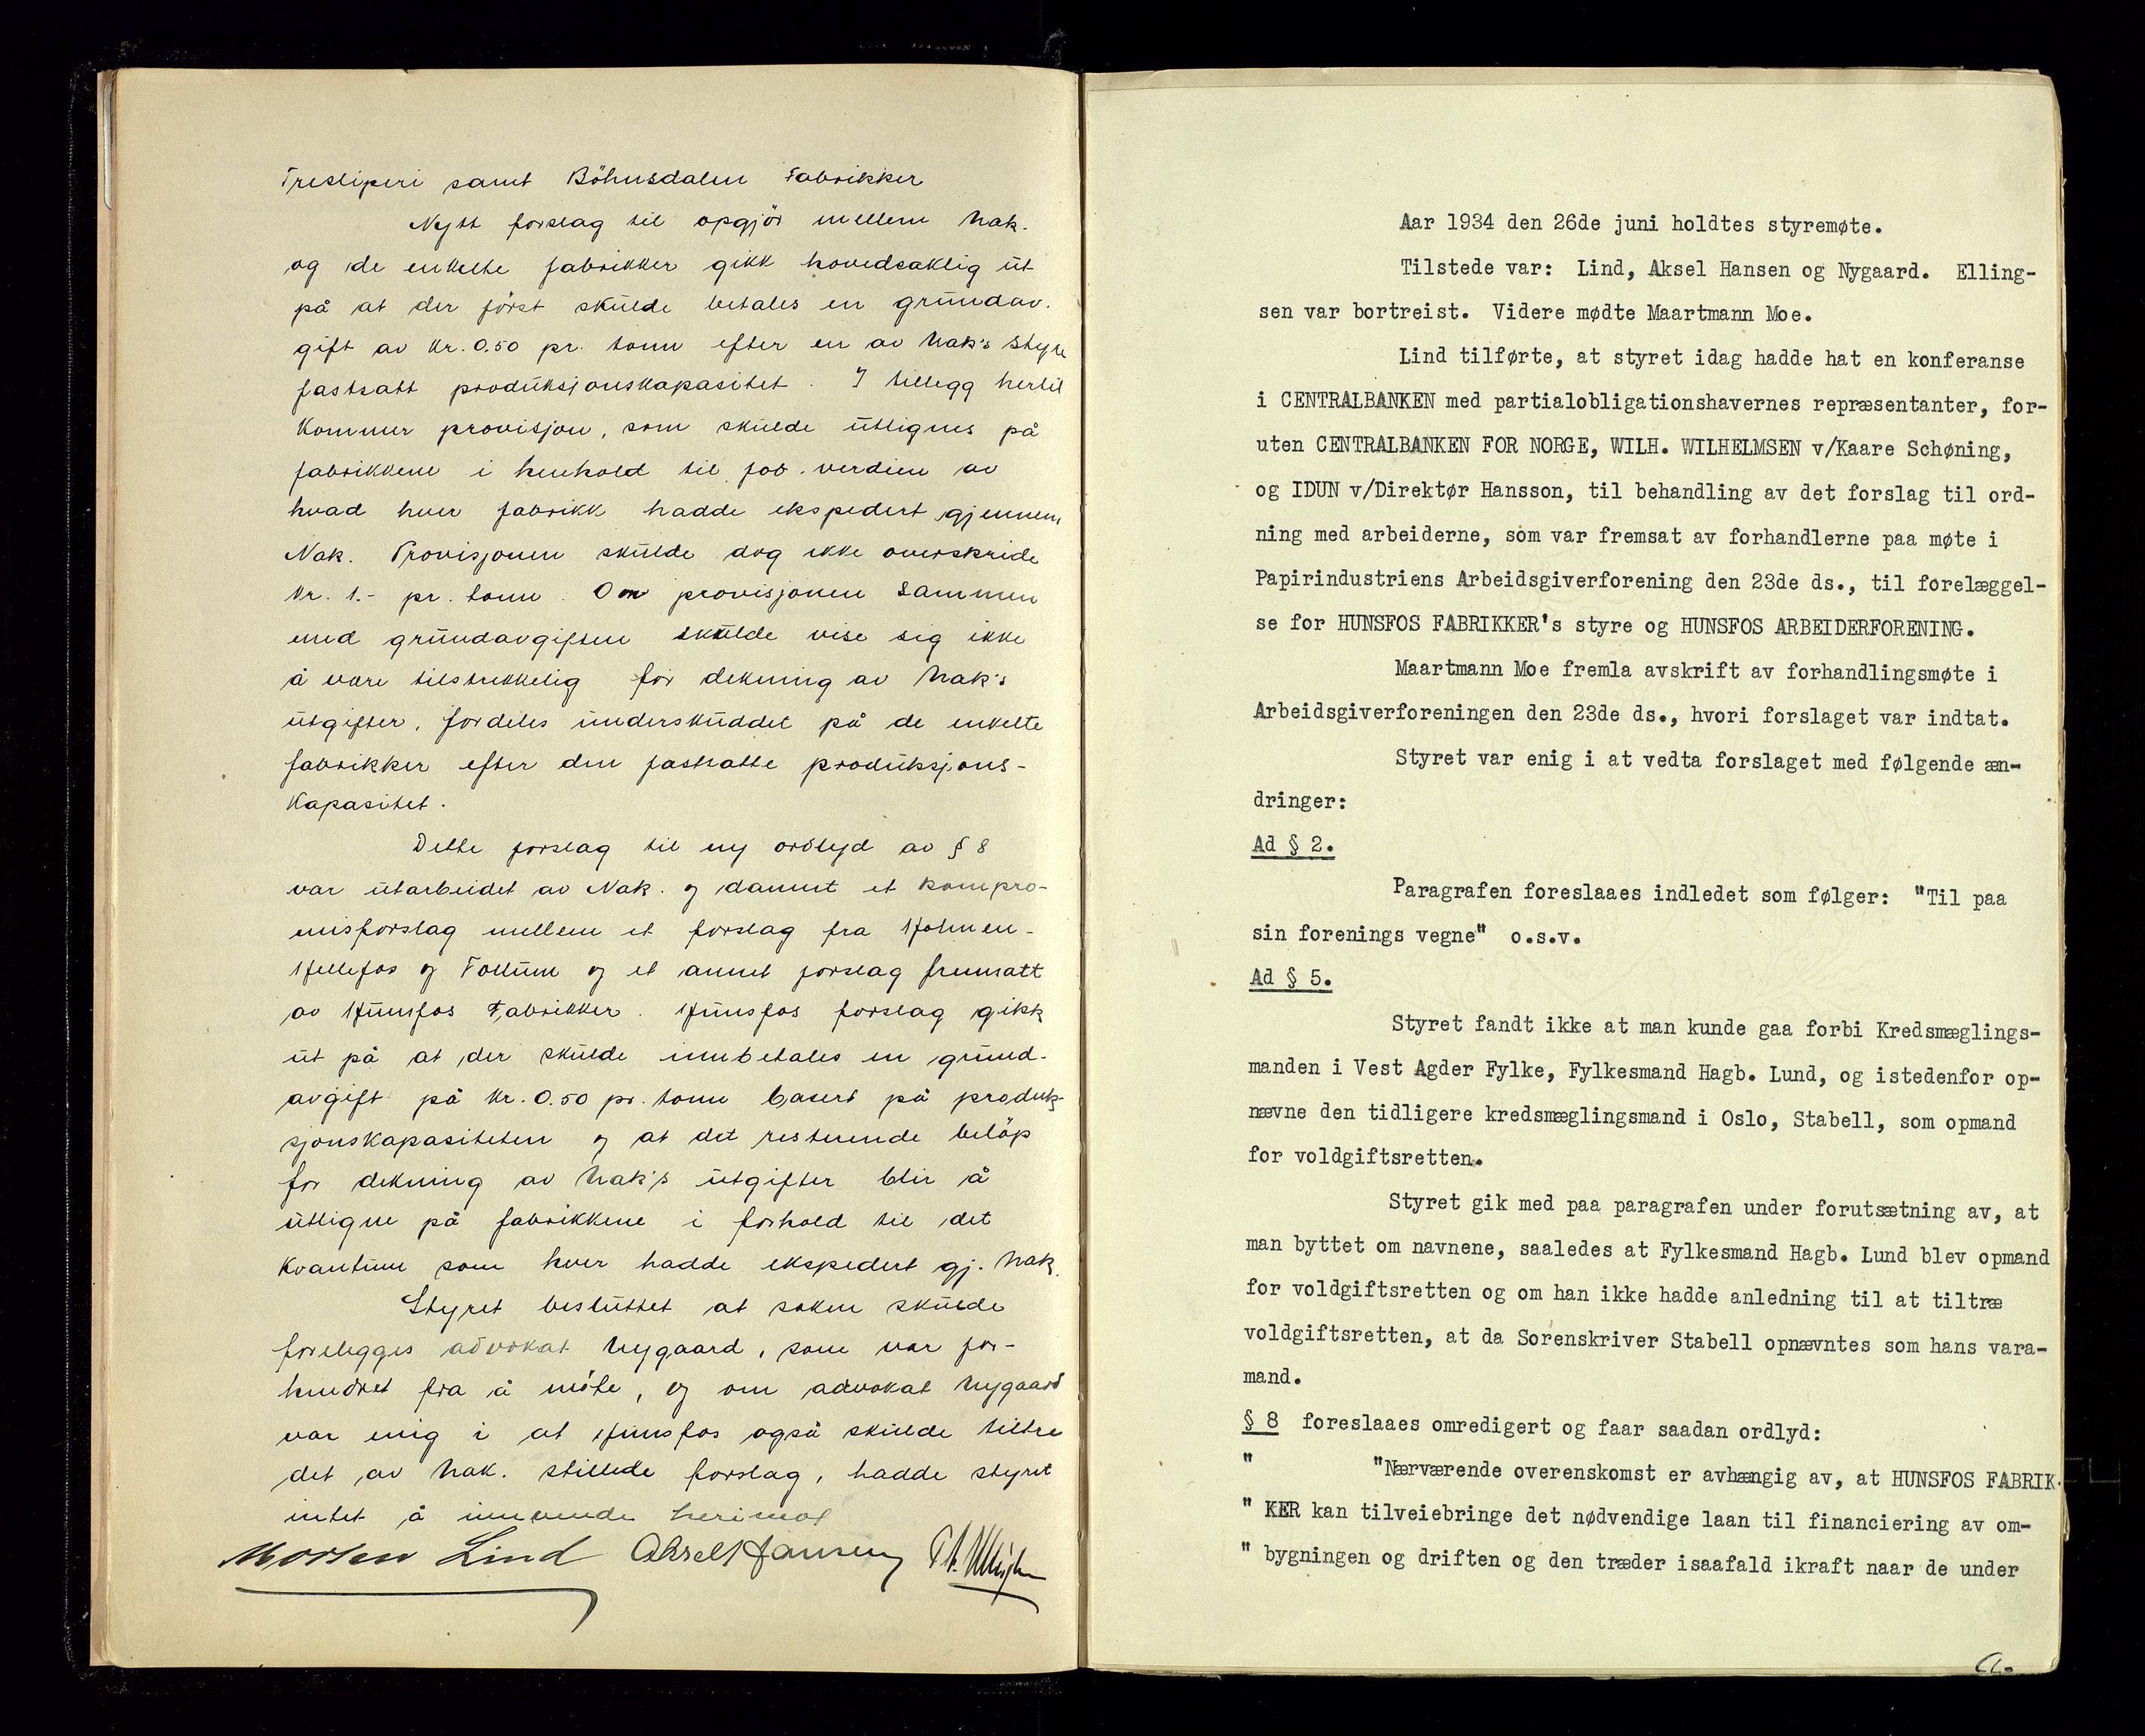 Tresliperi samt Böhnsdalen Fabrikker
Nytt forslag til opgjör mellem Nak.
og de enkelte fabrikker gikk hovedsaklig ut
på at der först skulde betales en grundav-
gift av kr. 0.50 pr. tonn efter en av Nak's styre
fastsatt produksjonskapasitet. I tillegg hertil
kommer provisjon, som skulde utlignes på
fabrikkene i henhold til fob. verdien av
hvad hver fabrikk hadde ekspedert gjennem
Nak. Provisjonen skulde dog ikke overskride
kr. 1.- pr. tonn. Om provisjonen sammen
med grundavgiften skulde vise sig ikke
å være tilstrekkelig for dekning av Nak's
utgifter, fordeles underskuddet på de enkelte
fabrikker efter den fastsatte produksjons-
kapasitet.
Dette forslag til ny ordlyd av § 8
var utarbeidet av Nak. og dannet et kompro-
misforslag mellem et forslag fra Hofmen-
Hellefos og Follum og et annet forslag fremsatt
av Hunsfos Fabrikker. Hunsfos forslag gikk
ut på at der skulde innbetales en grund-
avgift på kr. 0.50 pr. tonn basert på produk-
sjonskapasiteten og at det resterende belöp
for dekning av Nak's utgifter blir å
utligne på fabrikkene i forhold til det
kvantum som hver hadde ekspedert gj. Nak.
Styret besluttet at saken skulde
forelegges advokat Nygaard, som var for-
hindret fra å möte, og om advokat Nygaard
var enig i at Hunsfos også skulde tiltre
det av Nak. stillede forslag, hadde styret
intet å innvende herimot
Morten Lind Aksel Hansen
Aar 1934 den 26de juni holdtes styremøte.
Tilstede var: Lind, Aksel Hansen og Nygaard. Elling-
sen var bortreist. Videre mødte Maartmann Moe.
Lind tilførte, at styret idag hadde hat en konferanse
i CENTRALBANKEN med partialobligationshavernes repræsentanter, for-
uten CENTRALBANKEN FOR NORGE, WILH. WILHELMSEN v/Kaare Schøning,
og IDUN v/Direktør Hansson, til behandling av det forslag til ord-
ning med arbeiderne, som var fremsat av forhandlerne paa møte i
Papirindustriens Arbeidsgiverforening den 23de ds., til forelæggel-
se for HUNSFOS FABRIKKER's styre og HUNSFOS ARBEIDERFORENING.
Maartmann Moe fremla avskrift av forhandlingsmøte i
Arbeidsgiverforeningen den 23de ds., hvori forslaget var indtat.
Styret var enig i at vedta forslaget med følgende æn-
dringer:
Ad § 2.
Paragrafen foreslaaes indledet som følger: "Til paa
sin forenings vegne" o.s.v.
Ad § 5.
Styret fandt ikke at man kunde gaa forbi Kredsmæglings-
manden i Vest Agder Fylke, Fylkesmand Hagb. Lund, og istedenfor op-
nævne den tidligere kredsmæglingsmand i Oslo, Stabell, som opmand
for voldgiftsretten.
Styret gik med paa paragrafen under forutsætning av, at
man byttet om navnene, saaledes at Fylkesmand Hagb. Lund blev opmand
for voldgiftsretten og om han ikke hadde anledning til at tiltræ
voldgiftsretten, at da Sorenskriver Stabell opnævntes som hans vara-
mand.
§ 8 foreslaaes omredigert og faar saadan ordlyd:
" "Nærværende overenskomst er avhængig av, at HUNSFOS FABRIK-
" KER kan tilveiebringe det nødvendige laan til financiering av om-
" bygningen og driften og den træder isaafald ikraft naar de under